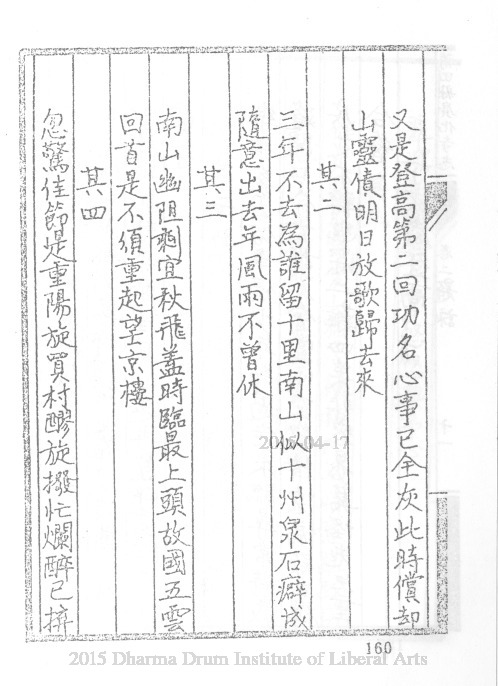 又是登高第二回功名心事已全灰此時償却
山靈債明日放歌歸去來
其二
三年不去為誰留十里南山似十州泉石癖成
隨意出去年風雨不曾休
其三
南山幽阻剩宜秋飛蓋時臨最上頭故國五雲
回首是不須重起望京樓
其四
忽驚佳節是重陽旋買村醪旋撥忙爛醉已拚
160
2015-04-17
2015 Dharma Drum Institute of Liberal Arts